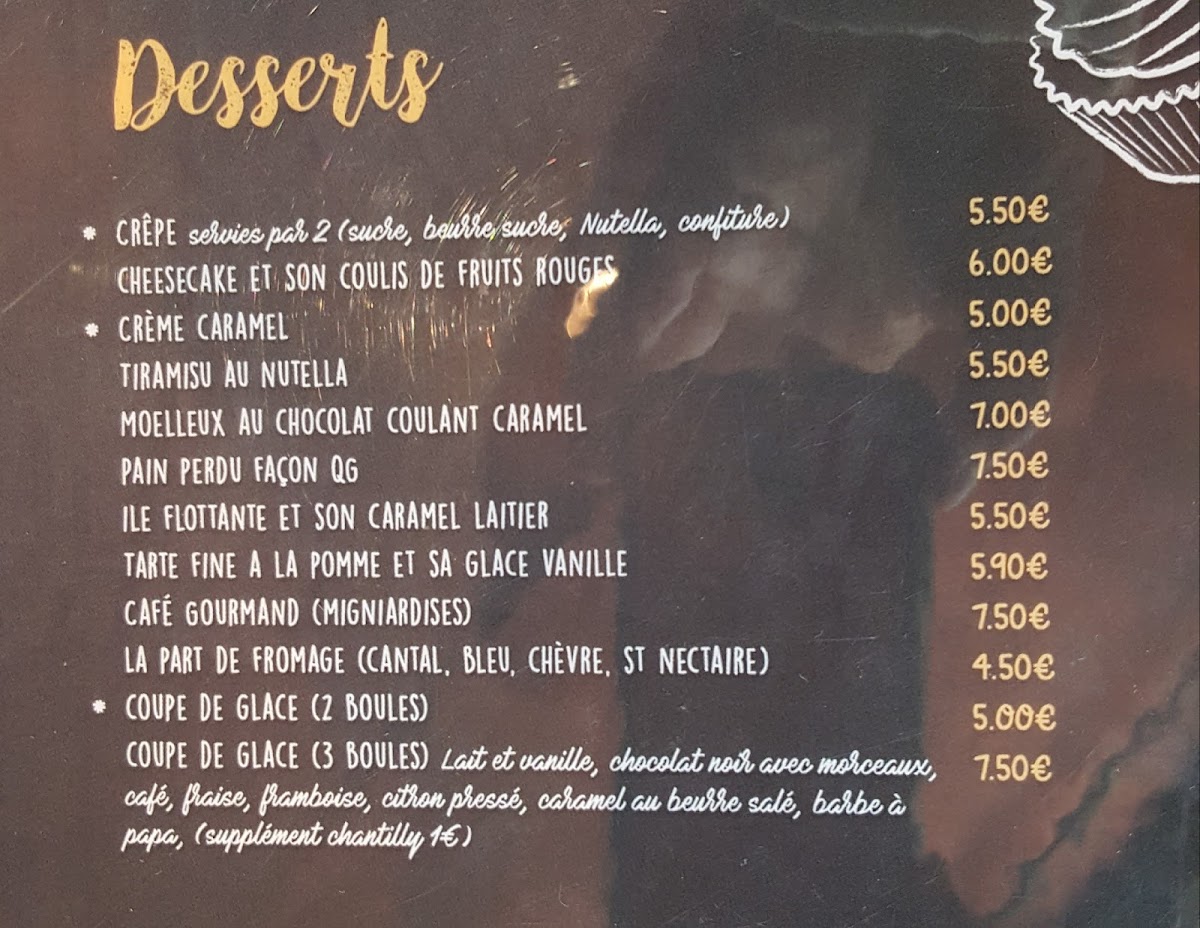 Desserts
* CRÊPE servies par 2 (sucre, beurre sucre, Nutella, confiture) 5.50€
CHEESECAKE ET SON COULIS DE FRUITS ROUGES 6.00€
* CRÈME CARAMEL 5.00€
TIRAMISU AU NUTELLA 5.50€
MOELLEUX AU CHOCOLAT COULANT CARAMEL 7.00€
PAIN PERDU FAÇON QG 7.50€
ILE FLOTTANTE ET SON CARAMEL LAITIER 5.50€
TARTE FINE A LA POMME ET SA GLACE VANILLE 5.90€
CAFÉ GOURMAND (MIGNIARDISES) 7.50€
LA PART DE FROMAGE (CANTAL, BLEU, CHÈVRE, ST NECTAIRE) 4.50€
* COUPE DE GLACE (2 BOULES) 5.00€
COUPE DE GLACE (3 BOULES) Lait et vanille, chocolat noir avec morceaux, 7.50€
café, fraise, framboise, citron pressé, caramel au beurre salé, barbe à
papa, (supplément chantilly 1€)